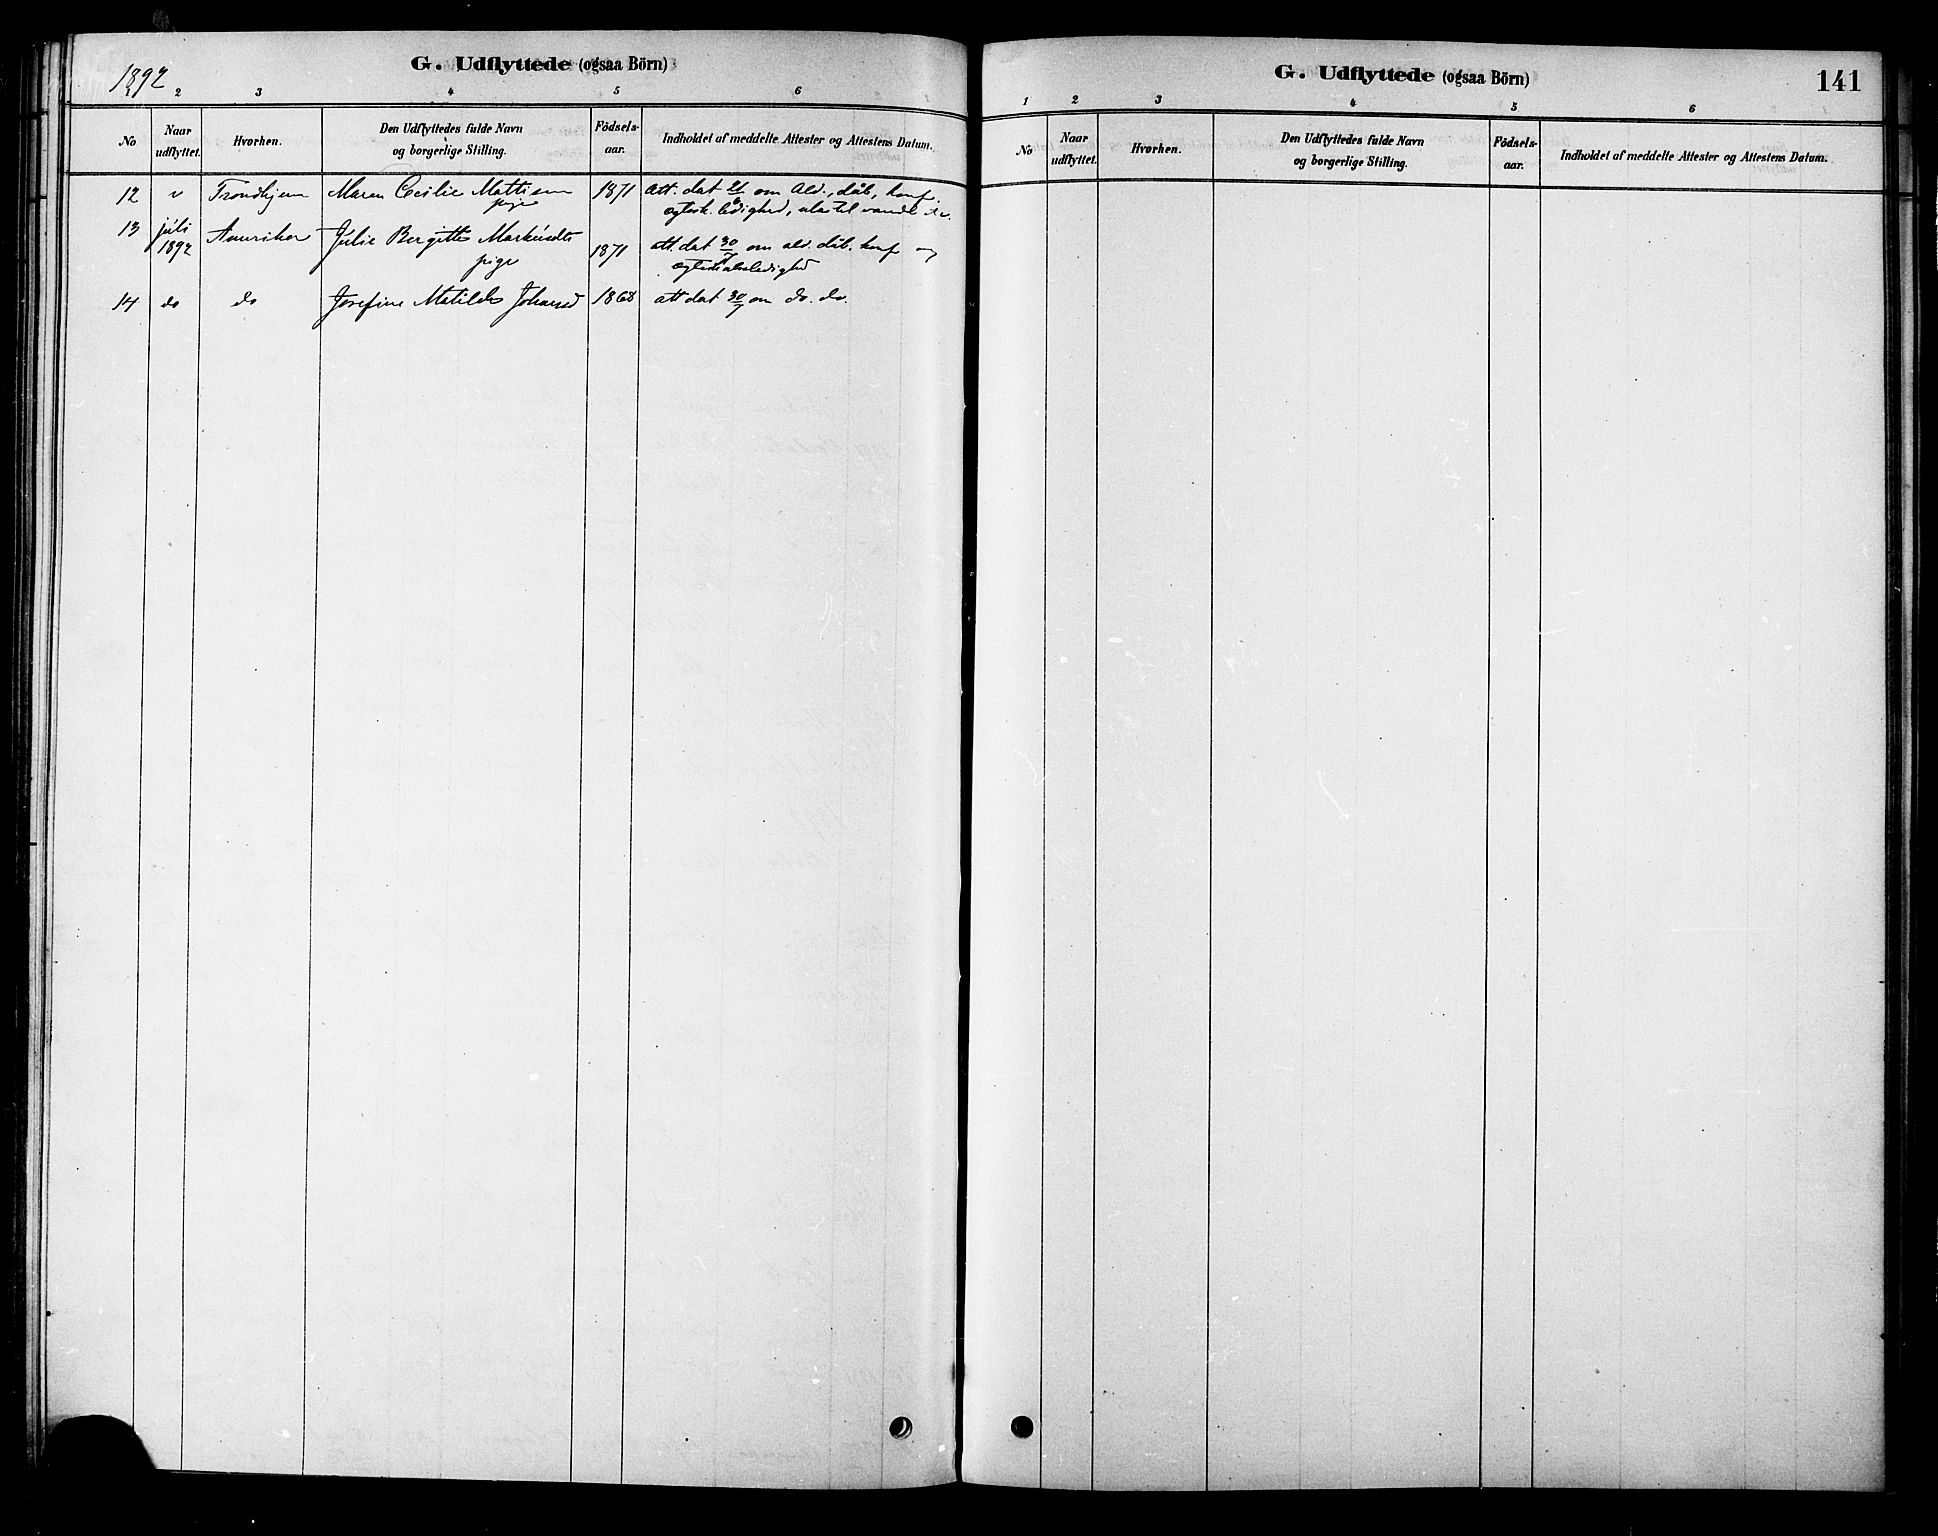 1892
G. Udflyttede (ogsaa Börn)
2 3 4 5 6
No
Naar udflyttet.
Hvorhen.
Den Udflyttedes fulde Navn
og borgerlige Stilling.
Födsels-
aar.
Indholdet af meddelte Attester og Attestens Datum.
12 " Trondhjem Maren Cecilie Mattisen 1871 Att. dat om Ald., dåb, konf.
pige ægtesk. ledighed,
13 juli 1892 Amerika Julie Bergitte Markusdt 1871 att. dat 30/7 om ald. dåb. konf og
pige
14 do do Josefine Matilde Johansd 1868 att dat 30/7 om do. do.
G. Udflyttede (ogsaa Börn)
141
1 2 3 4 5 6
No
Naar
udflyttet.
Hvorhen.
Den Udflyttedes fulde Navn
og borgerlige Stilling.
Födsels-
aar.
Indholdet af meddelte Attester og Attestens Datum.